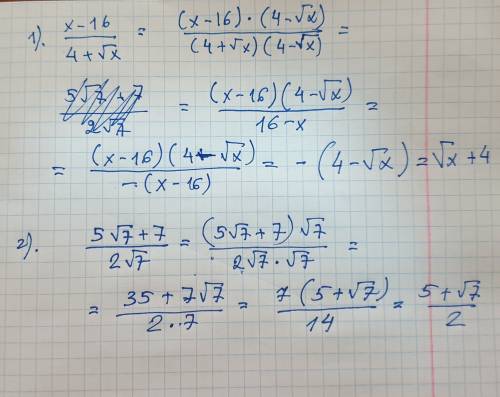 1). (x-16)/(4+√x) = ((x-16)·(4-√x))/((4+√x)(4-√x)) =
= ((x-16)(4-√x))/(16-x) =
= ((x-16)(4-√x))/(-(x-16)) = -(4-√x) = √x+4
2). (5√7+7)/(2√7) = ((5√7+7)√7)/(2√7·√7) =
= (35+7√7)/(2·7) = (7(5+√7))/14 = (5+√7)/2